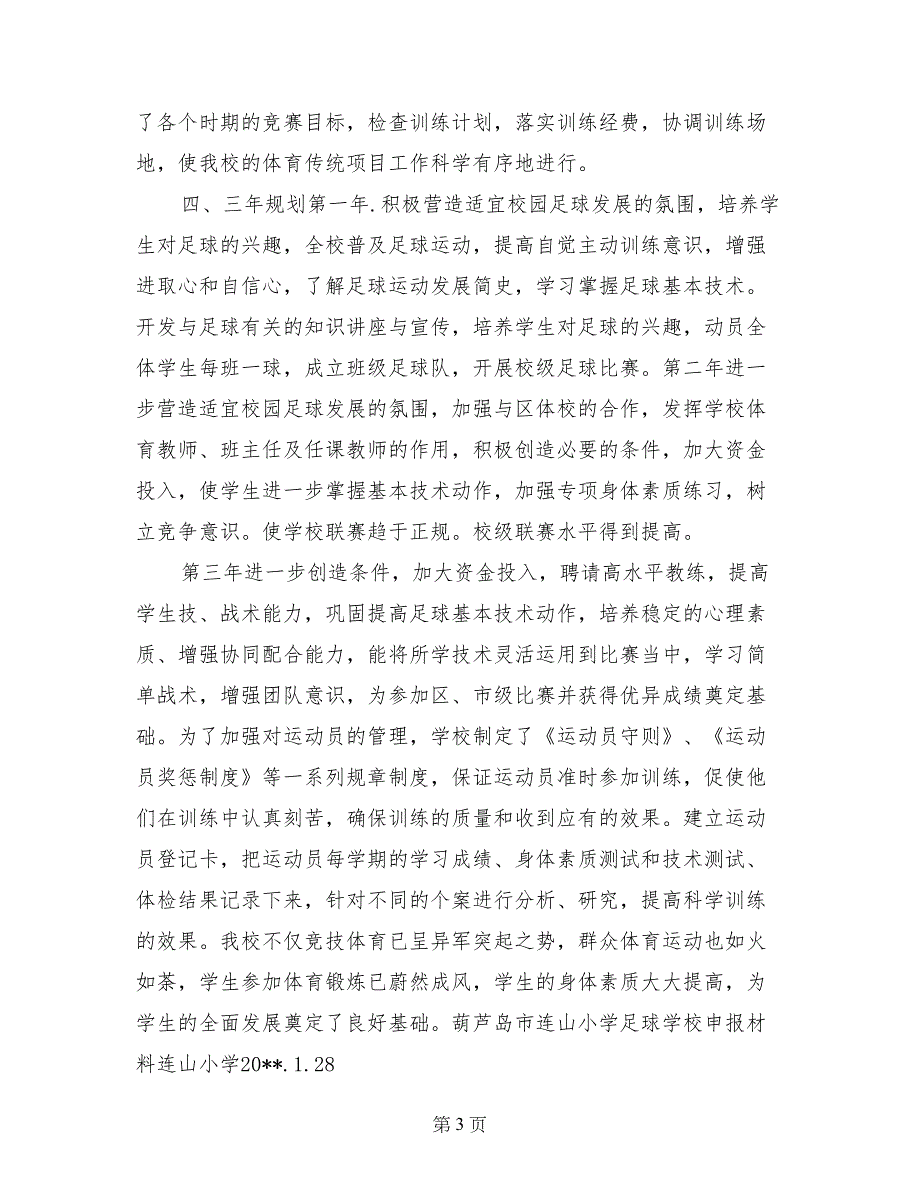 了各个时期的竞赛目标，检查训练计划，落实训练经费，协调训练场
地，使我校的体育传统项目工作科学有序地进行。
四、三年规划第一年.积极营造适宜校园足球发展的氛围，培养学
生对足球的兴趣，全校普及足球运动，提高自觉主动训练意识，增强
进取心和自信心，了解足球运动发展简史，学习掌握足球基本技术。
开发与足球有关的知识讲座与宣传，培养学生对足球的兴趣，动员全
体学生每班一球，成立班级足球队，开展校级足球比赛。第二年进一
步营造适宜校园足球发展的氛围，加强与区体校的合作，发挥学校体
育教师、班主任及任课教师的作用，积极创造必要的条件，加大资金
投入，使学生进一步掌握基本技术动作，加强专项身体素质练习，树
立竞争意识。使学校联赛趋于正规。校级联赛水平得到提高。
第三年进一步创造条件，加大资金投入，聘请高水平教练，提高
学生技、战术能力，巩固提高足球基本技术动作，培养稳定的心理素
质、增强协同配合能力，能将所学技术灵活运用到比赛当中，学习简
单战术，增强团队意识，为参加区、市级比赛并获得优异成绩奠定基
础。为了加强对运动员的管理，学校制定了《运动员守则》、《运动
员奖惩制度》等一系列规章制度，保证运动员准时参加训练，促使他
们在训练中认真刻苦，确保训练的质量和收到应有的效果。建立运动
员登记卡，把运动员每学期的学习成绩、身体素质测试和技术测试、
体检结果记录下来，针对不同的个案进行分析、研究，提高科学训练
的效果。我校不仅竞技体育已呈异军突起之势，群众体育运动也如火
如荼，学生参加体育锻炼已蔚然成风，学生的身体素质大大提高，为
学生的全面发展奠定了良好基础。葫芦岛市连山小学足球学校申报材
料连山小学20**.1.28
第 3 页